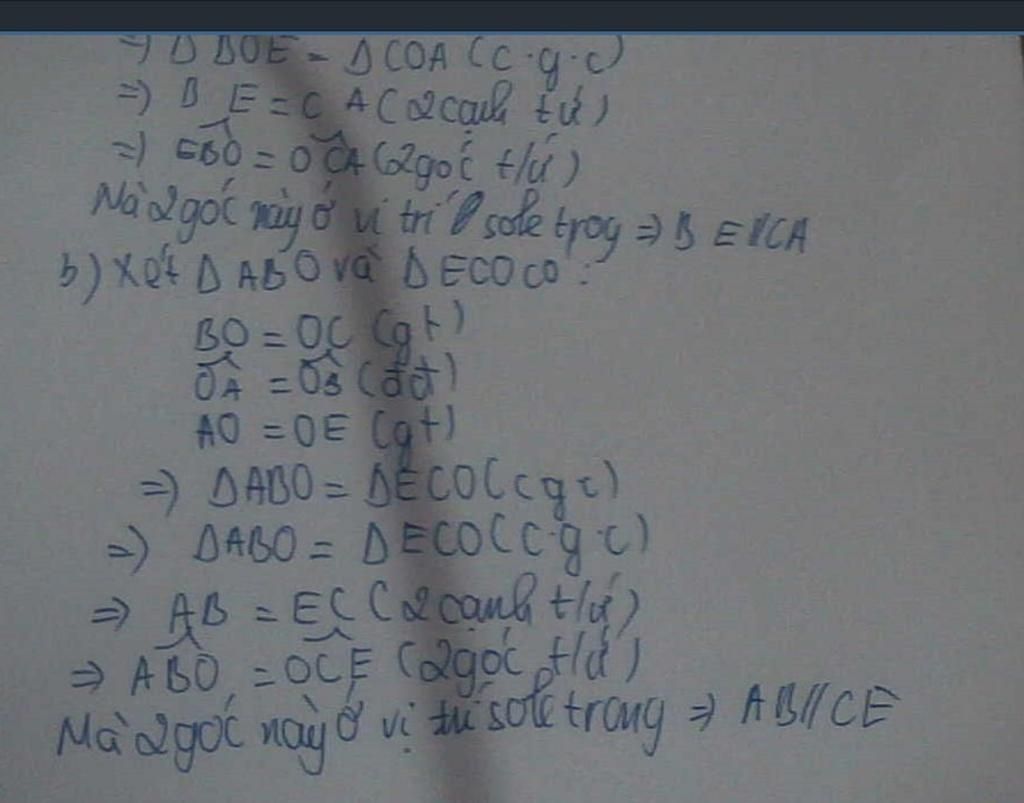 =) Δ BOE = Δ COA (c.g.c)
=) B E = C A (2 cạnh t ứ)
=) EBO = OCA (2 góc t/ứ)
Mà 2 góc này ở vị trí sole trog => B E // CA
b) Xét Δ ABO và Δ ECO có :
BO = OC (gt)
OA = OB (đđ)
AO = OE (gt)
=) ΔABO = ΔECO (c g c)
=) ΔABO = ΔECO (c.g.c)
=> AB = EC (2 cạnh t/ứ)
=> ABO = OCE (2 góc t/ứ)
Mà 2 góc này ở vị trí sole trong => AB // CE